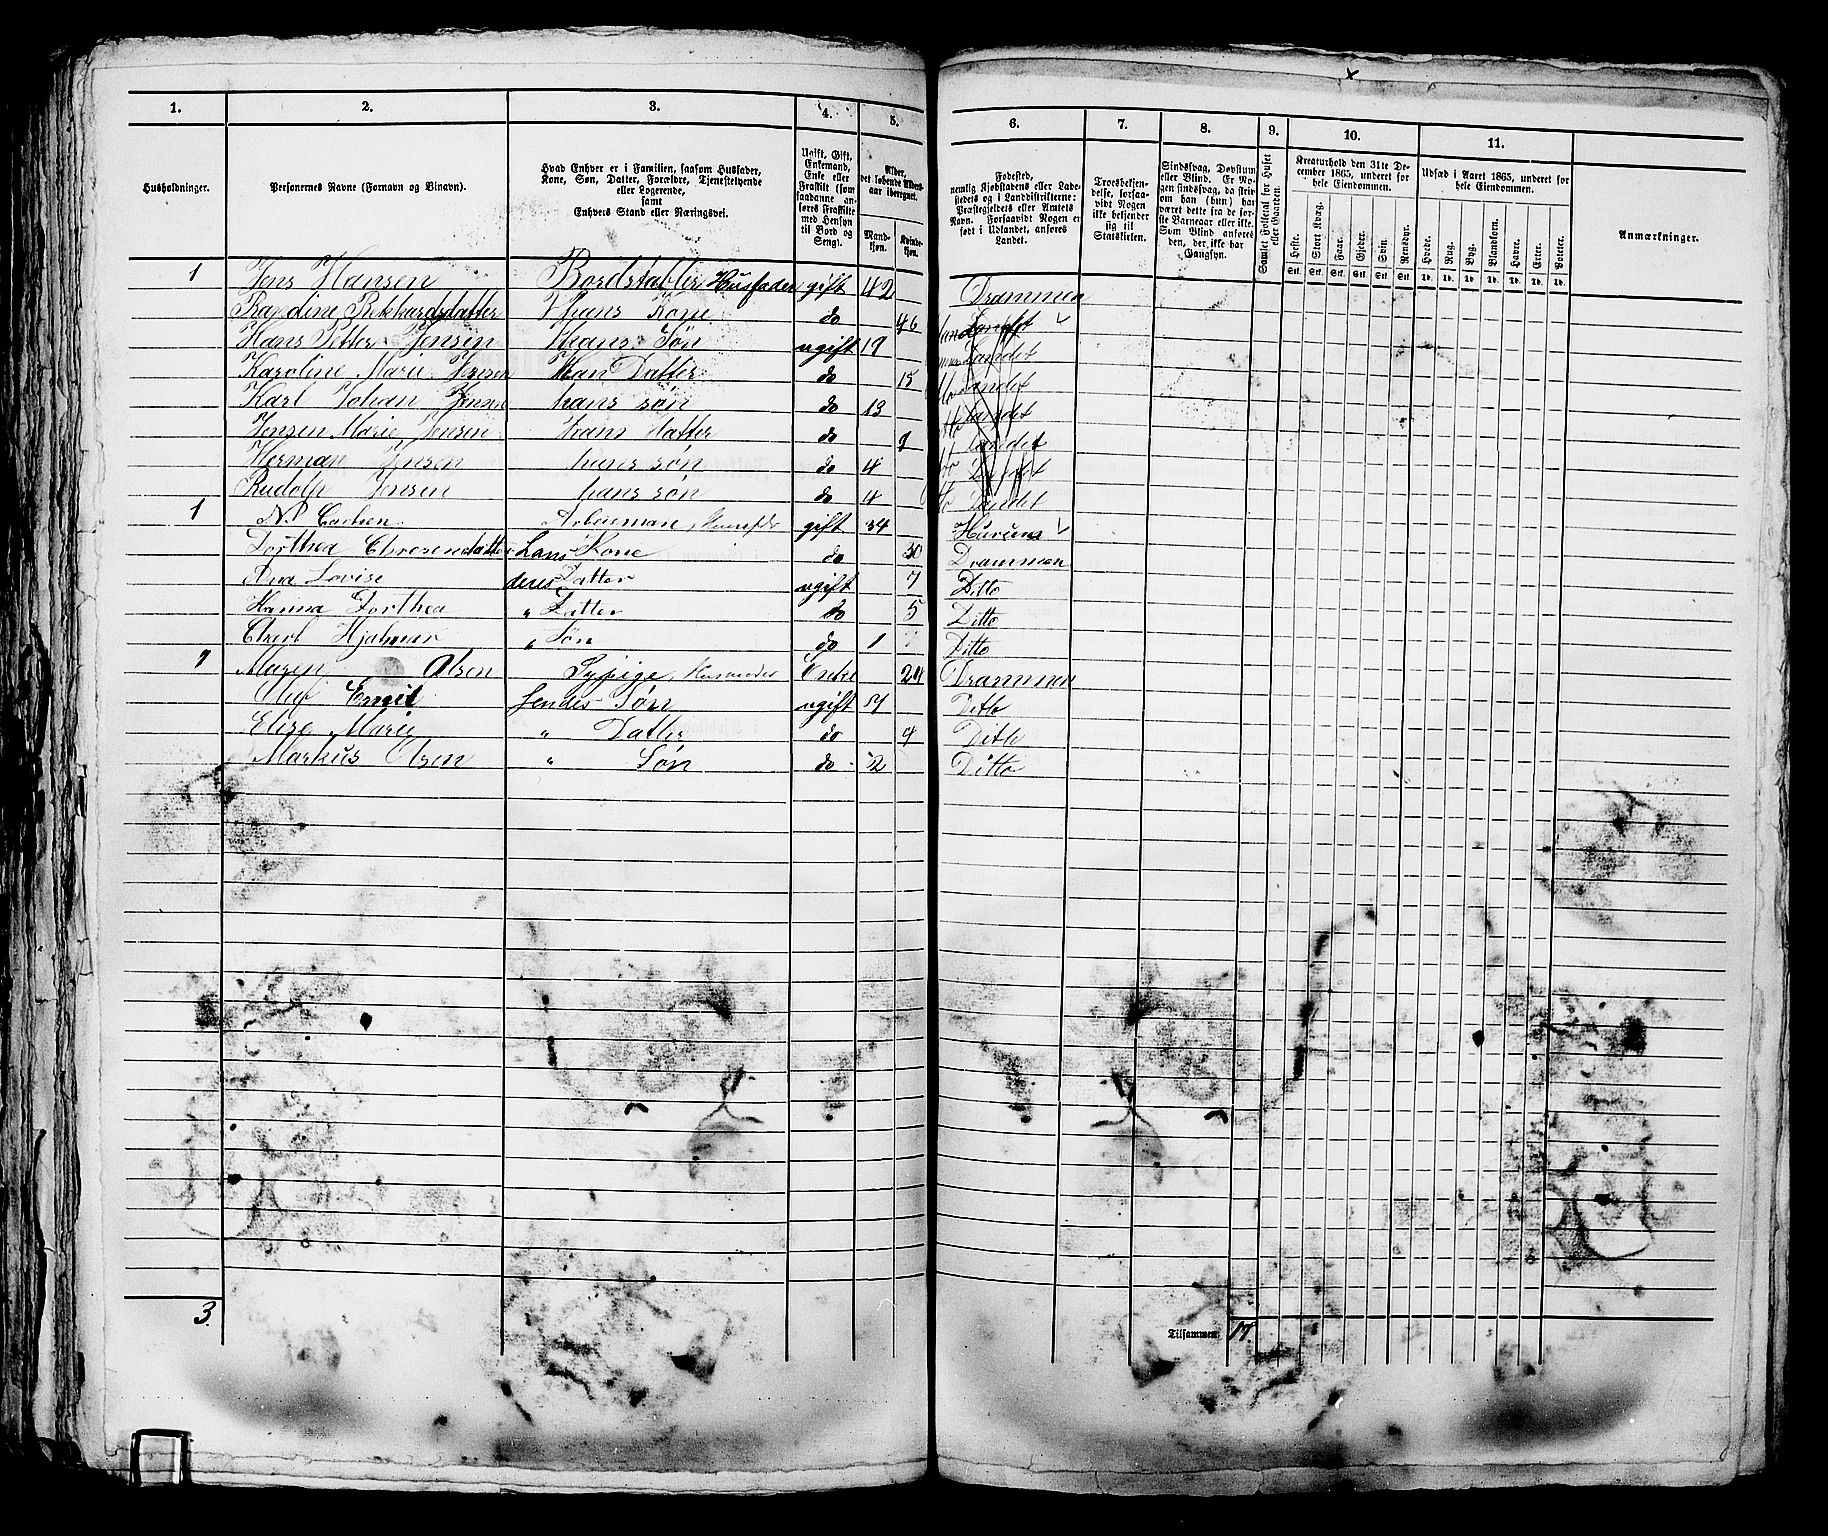 1. 2. 3. 4. 5. 6. 7. 8. 9. 10. 11.
Husholdninger.
Personernes Navne (Fornavn og Binavn).
Hvad Enhver er i Familien, saasom Husfader,
Kone, Søn, Datter, Forældre, Tjenestetyende
eller Logerende,
samt
Enhvers Stand eller Næringsvei.
Ugift, Gift,
Enkemand,
Enke eller
Fraskilt (som
saadanne an-
føres Fraskilte
med Hensyn
til Bord og
Seng).
Alder,
det løbende Alders-
aar iberegnet.
Mand-
kjøn.
Kvinde-
kjøn.
Fødested,
nemlig Kjøbstadens eller Lade-
stedets og i Landdistrikterne:
Præstegjeldets eller Amtets
Navn. Forsaavidt Nogen er
født i Udlandet, anføres
Landet.
Troesbekjen-
delse, forsaa-
vidt Nogen
ikke bekjender
sig til
Statskirken.
Sindssvag, Døvstum
eller Blind. Er No-
gen sindssvag, da skriv
om han (hun) har
været dette fra de før-
ste Barneaar eller ikke.
Som Blind anføres
den, der ikke har
Gangsyn.
Samlet Folketal for Huset
eller Gaarden.
Kreaturhold den 31te De-
cember 1865, underet for
hele Eiendommen.
Heste. Stort Kvæg. Faar. Gjeder. Svin. Rensdyr.
Stk. Stk. Stk. Stk. Stk. Stk.
Udsæd i Aaret 1865, underet for
hele Eiendommen.
Hvede. Rug. Byg. Blandkorn. Havre. Erter. Poteter.
Td. Td. Td. Td. Td. Td. Td.
Anmærkninger.
1 Jens Hansen Bordstabler Husfader gift 42 Drammen
Hans Kone do 46
Hans Petter Jensen Hans Søn ugift 19 Landet
Karoline Marie Jensen Datter do 15 Landet
Karl Johan Jensen hans søn do 13 Landet
Jensen Marie Jensen hans Datter do Landet
Herman Jensen hans søn do 4
Rudolf Jensen hans søn do 4 Landet
1 N. Carlsen Arbeisman gift 34 Hurum
Dorthea Kone do 30 Drammen
Ana Lovise deres Datter ugift 7 Ditto
Hanna Dorthea " Datter do 5 Ditto
Hjalmer " Søn do 1 Ditto
1 Maren Olsen Sypige Enke 29 Drammen
Oluf Emil Søn ugift Ditto
Elise Marie " Datter do 4 Ditto
Markus Olsen " Søn do 2 Ditto
3.
Tilsammen 17.